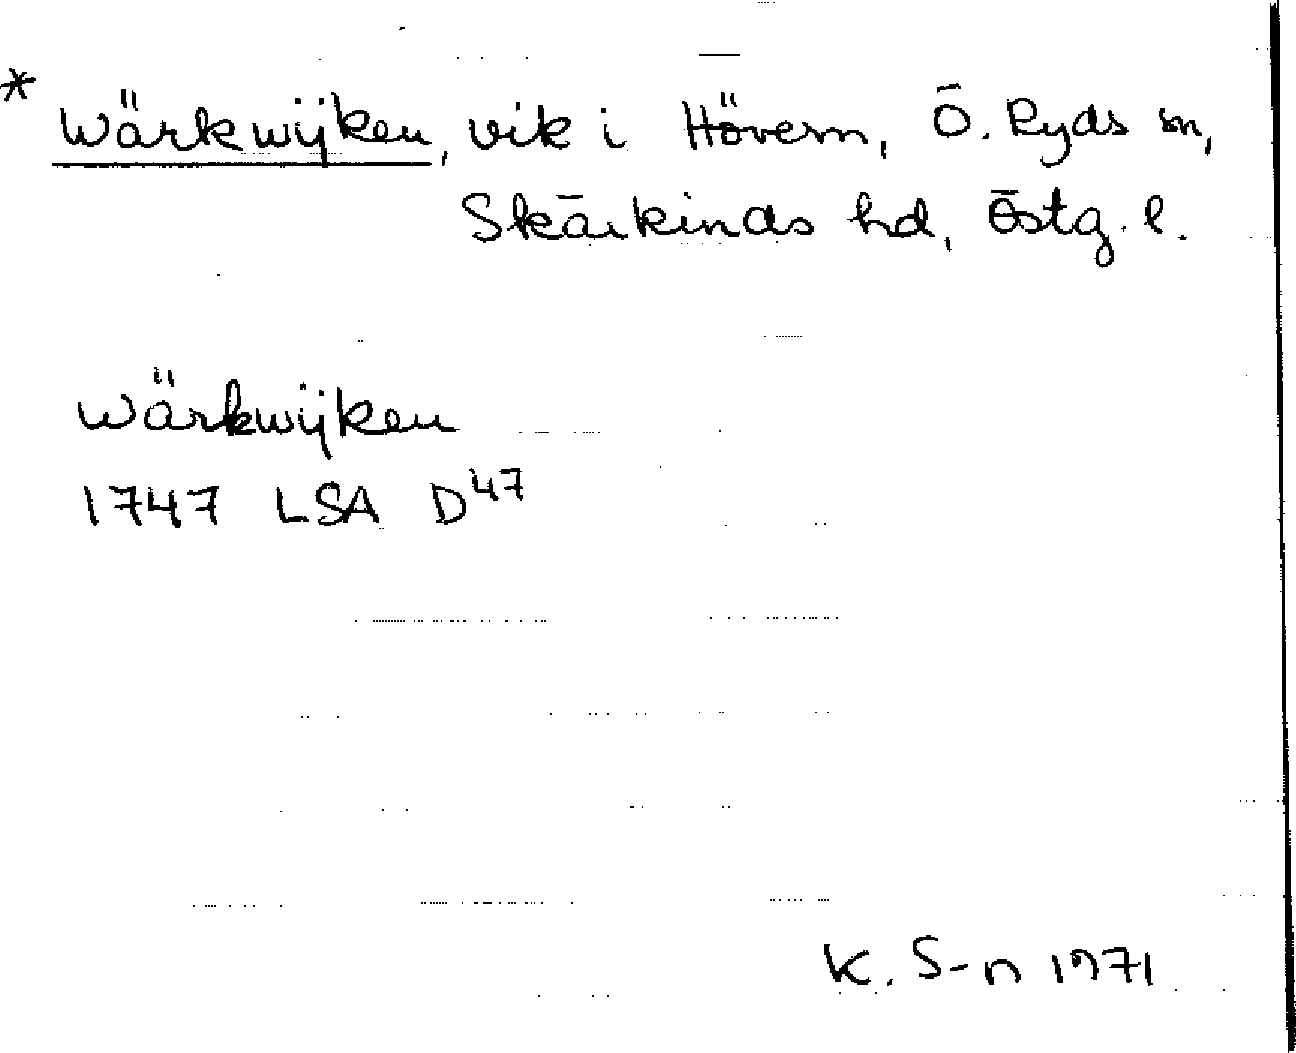 * Wärkwijken, vik i Hövern, Ö. Ryds sn,
Skärkinds hd, Östg. l.
Wärkwijken
1747 LSA D47
K. S-n 1971